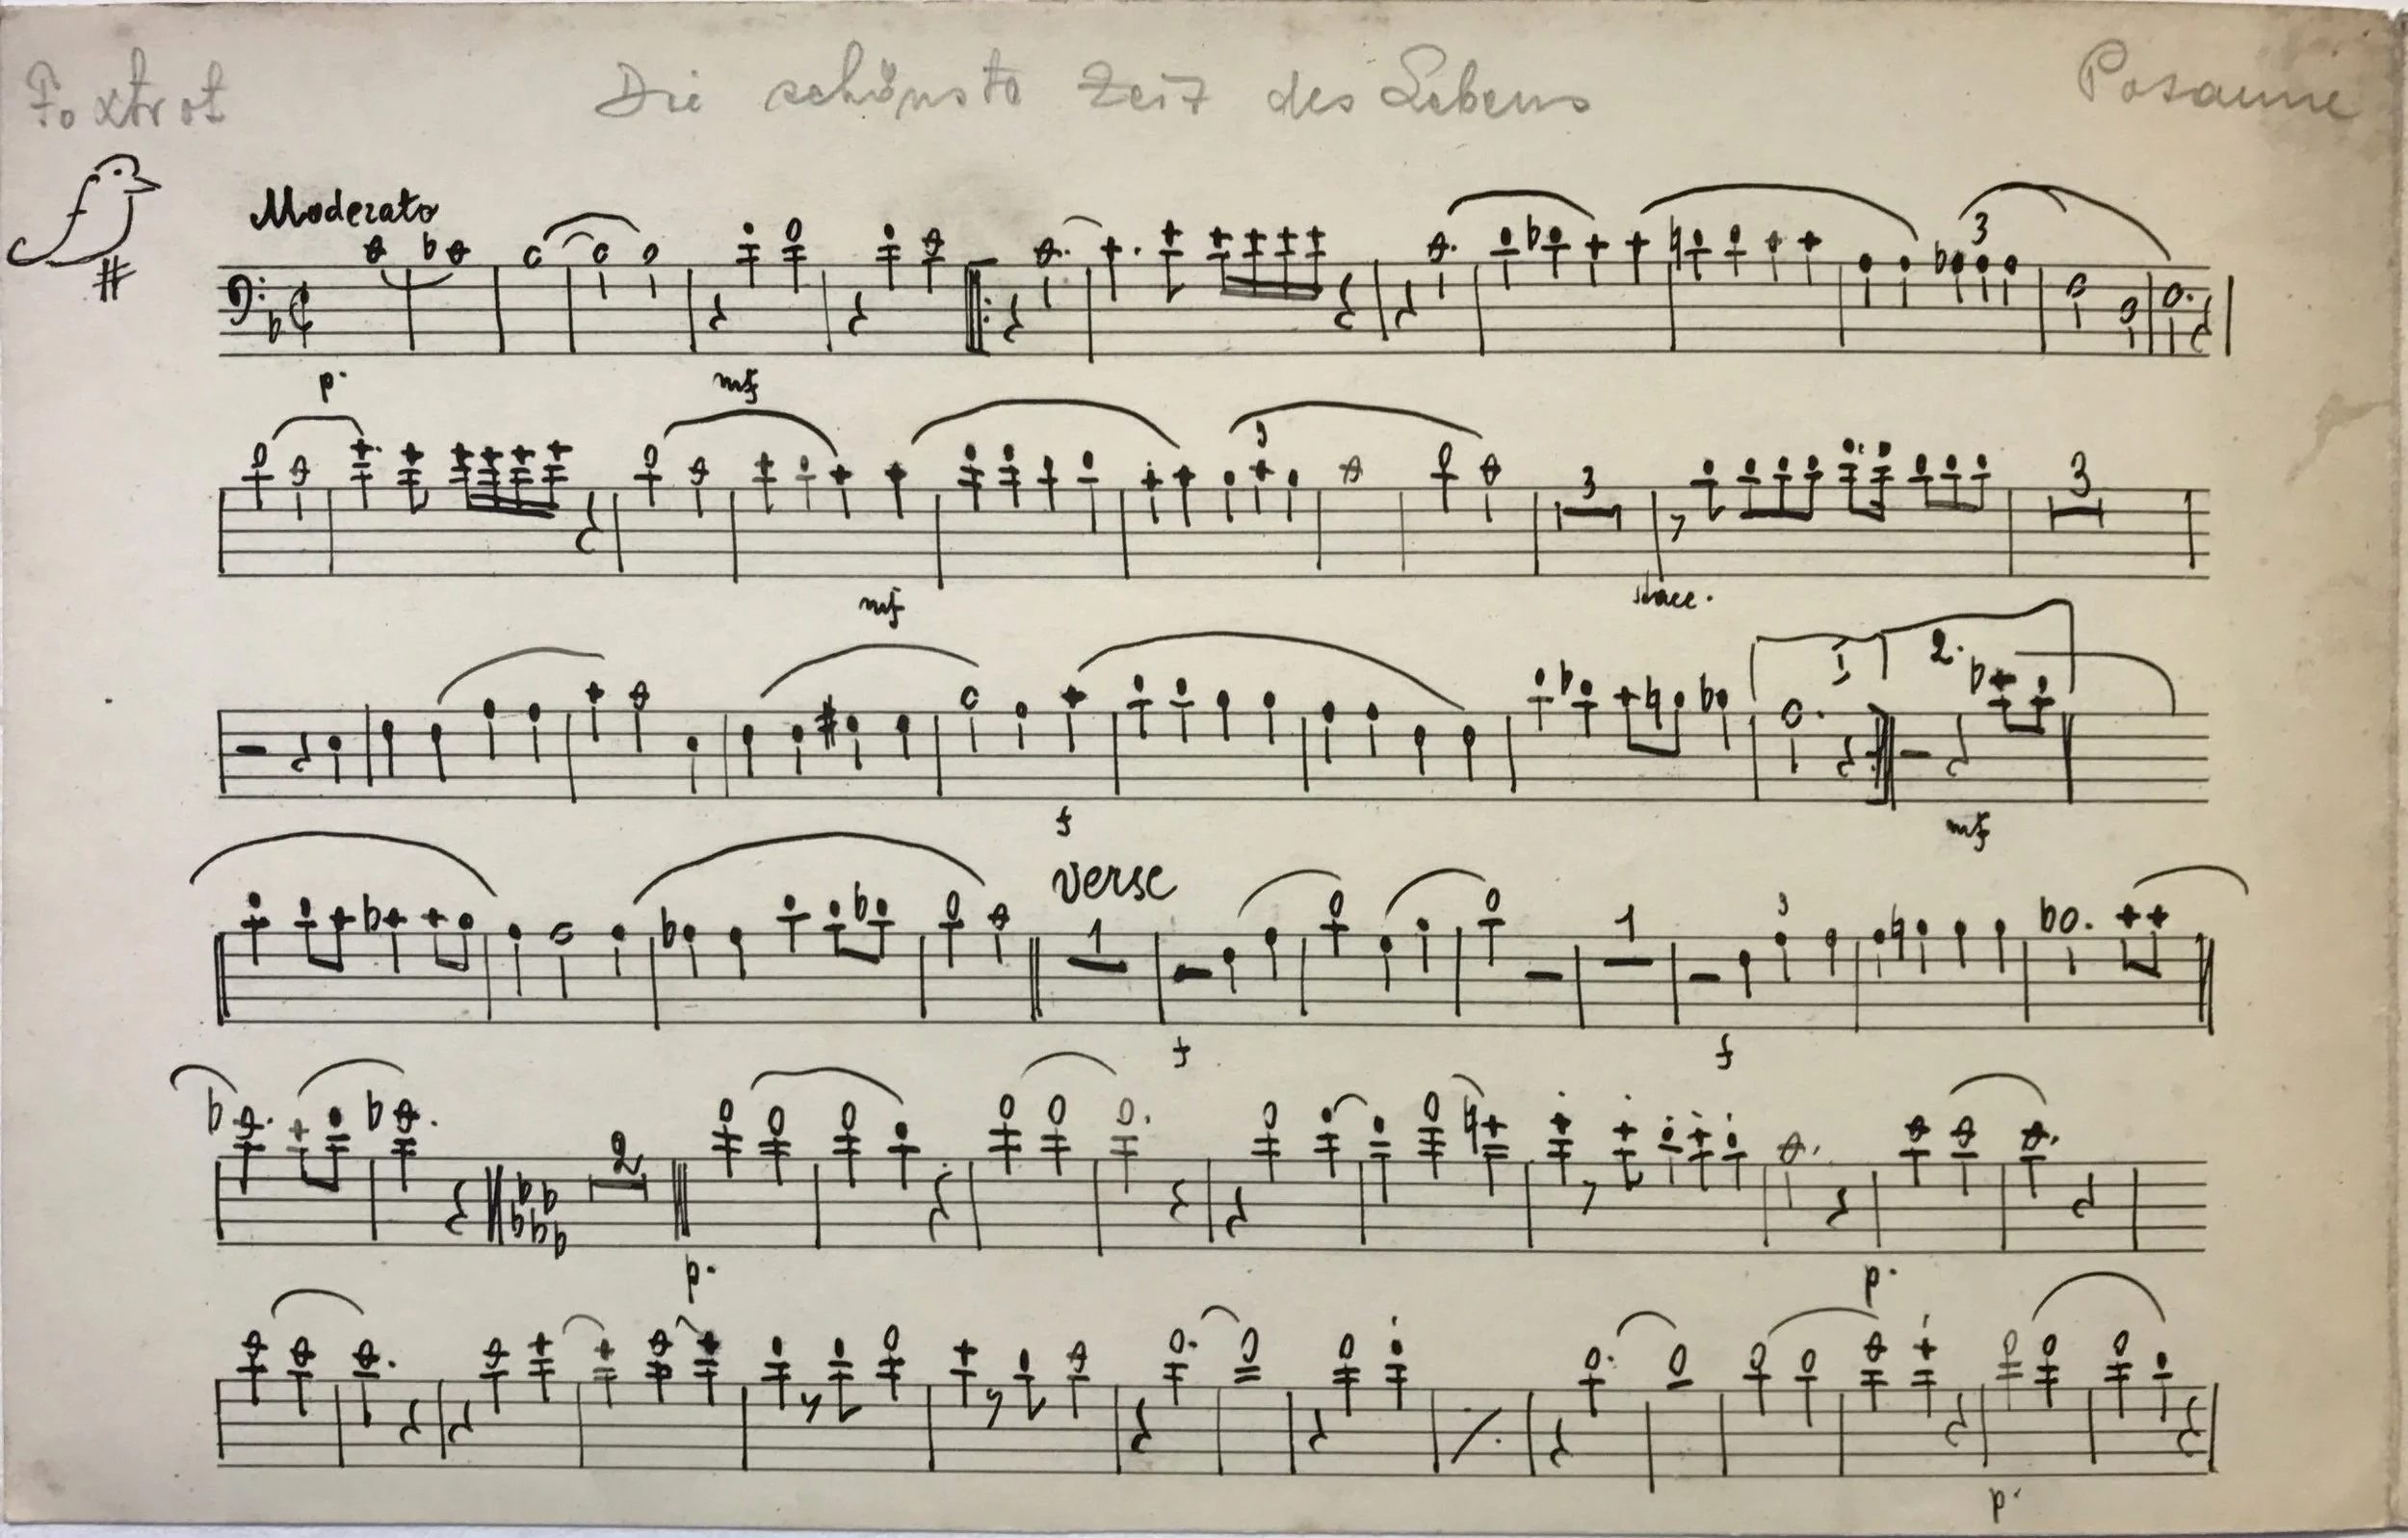 Foxtrot Die schönste Zeit des Lebens Posaune
Moderato
3
p. mf
3 3 3
mf stacc.
1 2.
f mf
verse
1 1 3
f f
2
p. p.
p.